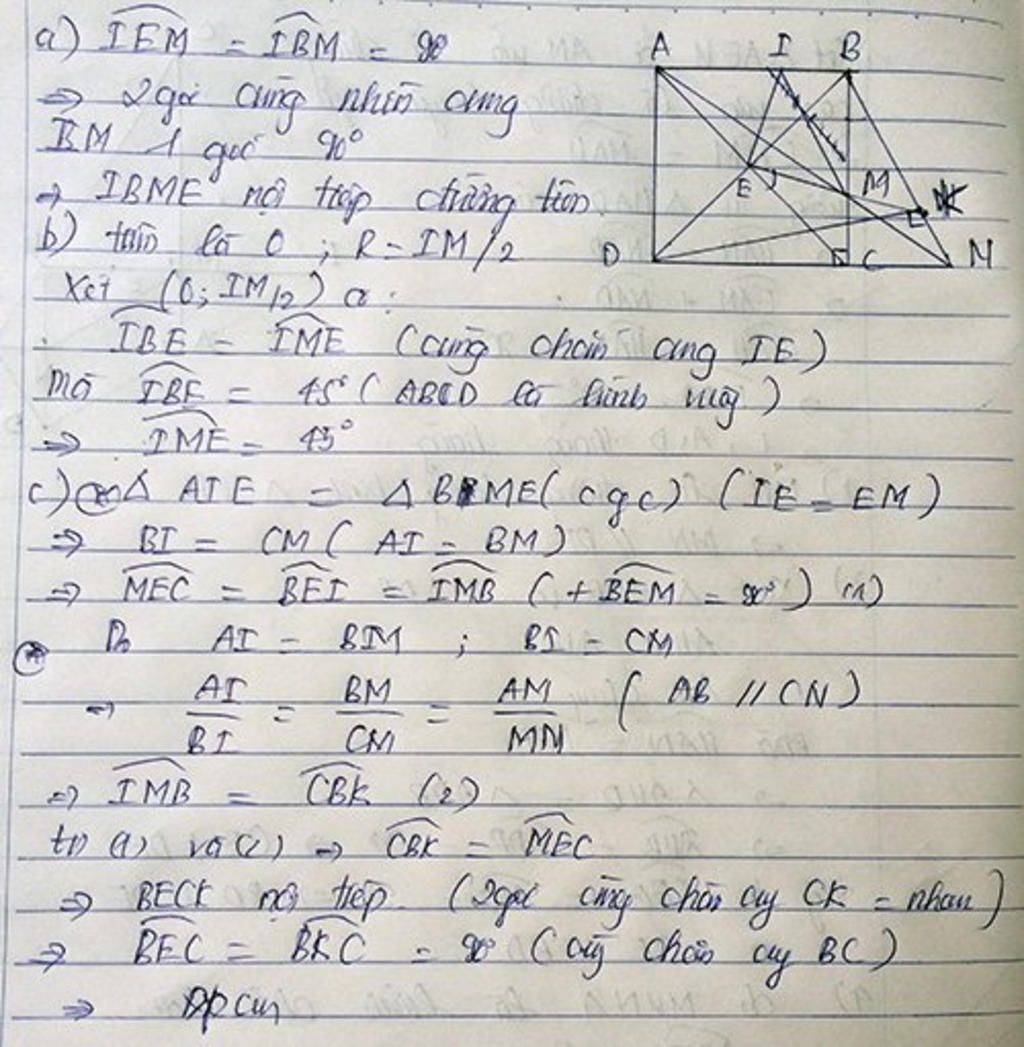 a) IEM = IBM = 90
=> 2 góc cùng nhìn cung
BM 1 góc 90°
=> IBME nội tiếp đường tròn
b) tâm là O ; R = IM/2
Xét (O; IM/2) có :
IBE = IME (cùng chắn cung IE)
mà IBE = 45° (ABCD là hình vuông)
=> IME = 45°
c) Δ AIE = Δ BME (cgc) (IE = EM)
=> BI = CM (AI = BM)
=> MEC = BEI = IMB (+ BEM = 90°) (1)
Do AI = BM ; BI = CM
=> AI/BI = BM/CM = AM/MN (AB // CN)
=> IMB = CBK (2)
từ (1) và (2) => CBK = MEC
=> BECK nội tiếp (2 góc cùng chắn cung CK = nhau)
=> BEC = BKC = 90° (cùng chắn cung BC)
=> Đpcm
A I B
E M K
D C N